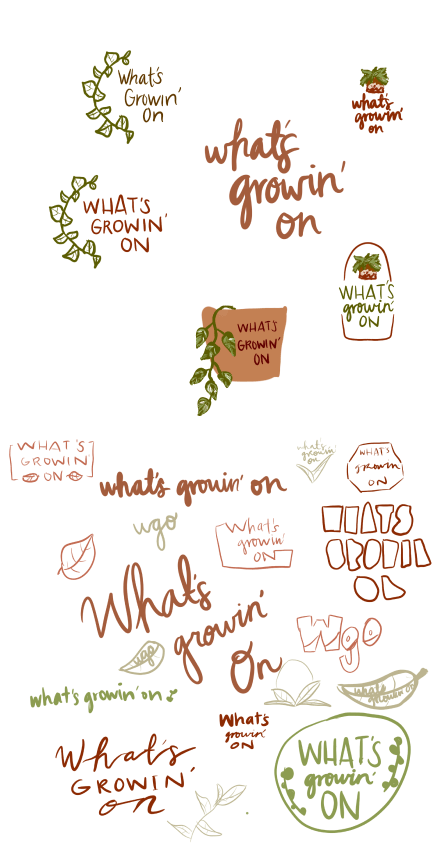 What's
Growin'
On
what's
growin'
on
what's
growin'
on
WHAT'S
GROWIN'
ON
WHAT'S
growin'
ON
WHAT'S
GROWIN'
ON
WHAT'S
GROWIN
ON
what's growin' on
what's
growin'
on
WHAT'S
growin
ON
wgo
What's
growin'
ON
WHATS
GROWIN
ON
What's
growin'
On
Wgo
wgo
what's growin' on
what's
growin' on
What's
growin'
ON
What's
GROWIN'
on
WHAT'S
growin'
ON